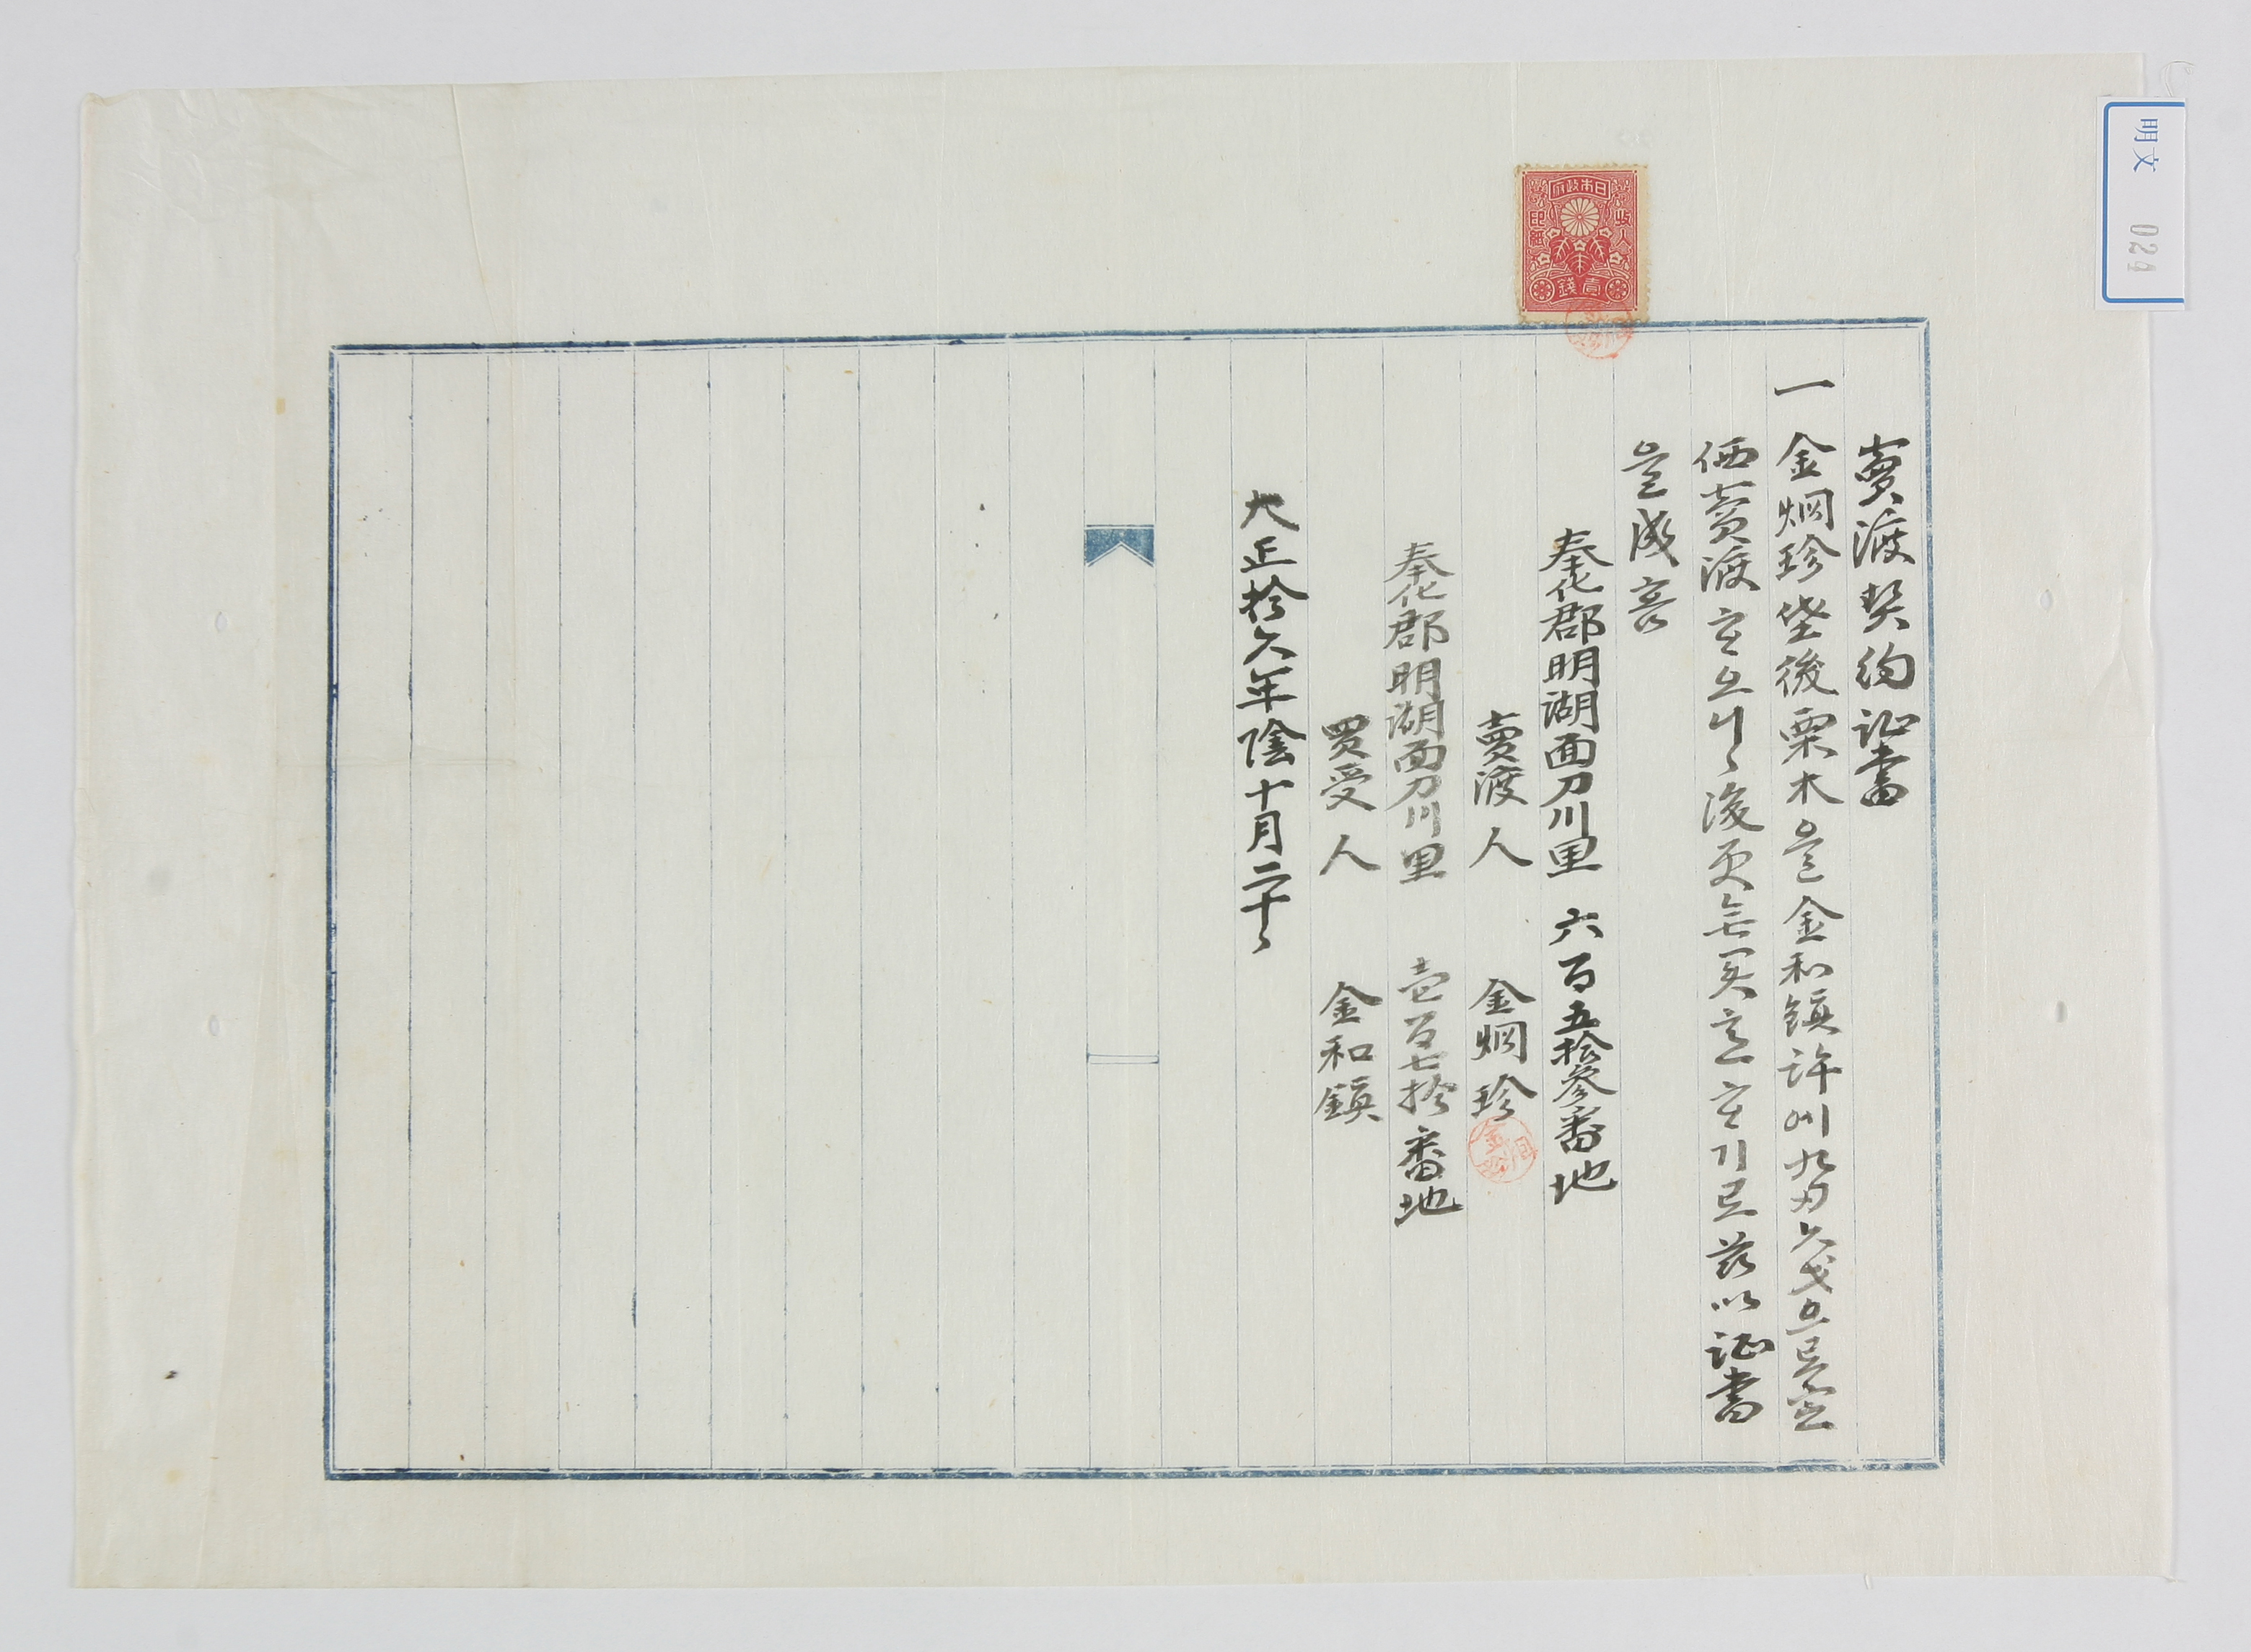 明文 024
日本政府
收入印紙
壹錢
賣渡契約証書
一 金烱珍垈後栗木을金和鎮許에九円六戋으로定
価賣渡호오니後更無異言호기로玆以証書
을成홈
奉化郡明湖面刀川里 六百五拾參番地
賣渡人 金烱珍
奉化郡明湖面刀川里 壱百七拾番地
買受人 金和鎮
大正拾六年陰十月二十